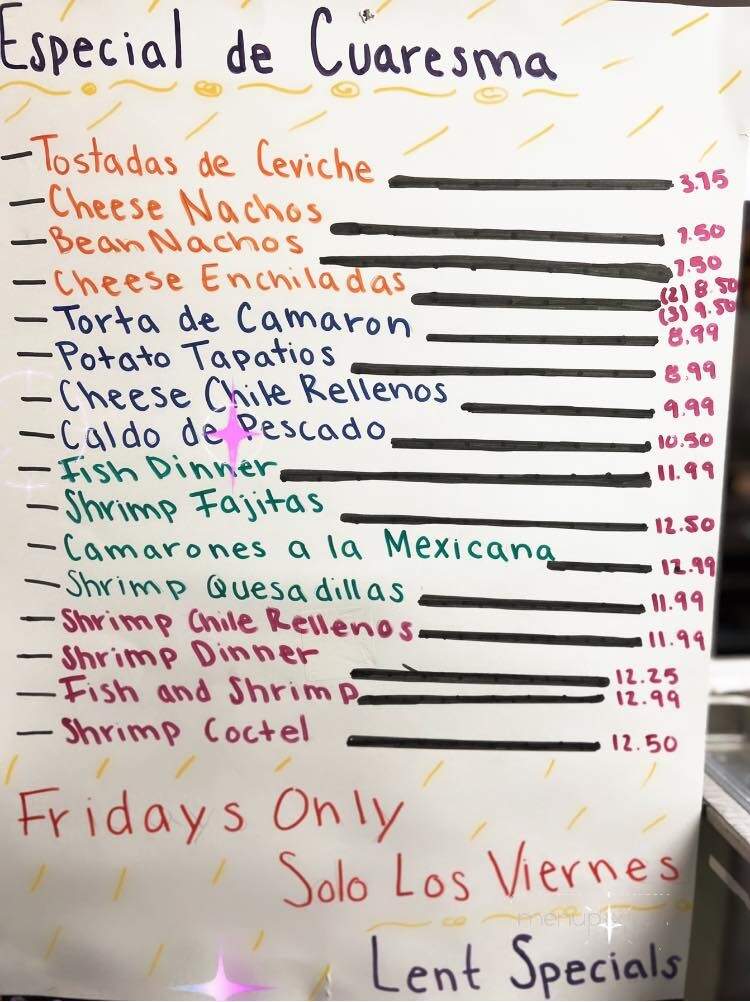 Especial de Cuaresma
- Tostadas de Ceviche 3.75
- Cheese Nachos 7.50
- Bean Nachos 7.50
- Cheese Enchiladas (2) 8.50
(3) 9.50
- Torta de Camaron 8.99
- Potato Tapatios 8.99
- Cheese Chile Rellenos 9.99
- Caldo de Pescado 10.50
- Fish Dinner 11.99
- Shrimp Fajitas 12.50
- Camarones a la Mexicana 12.99
- Shrimp Quesadillas 11.99
- Shrimp Chile Rellenos 11.99
- Shrimp Dinner 12.25
- Fish and Shrimp 12.99
- Shrimp Coctel 12.50
Fridays Only
Solo Los Viernes
menupix
Lent Specials